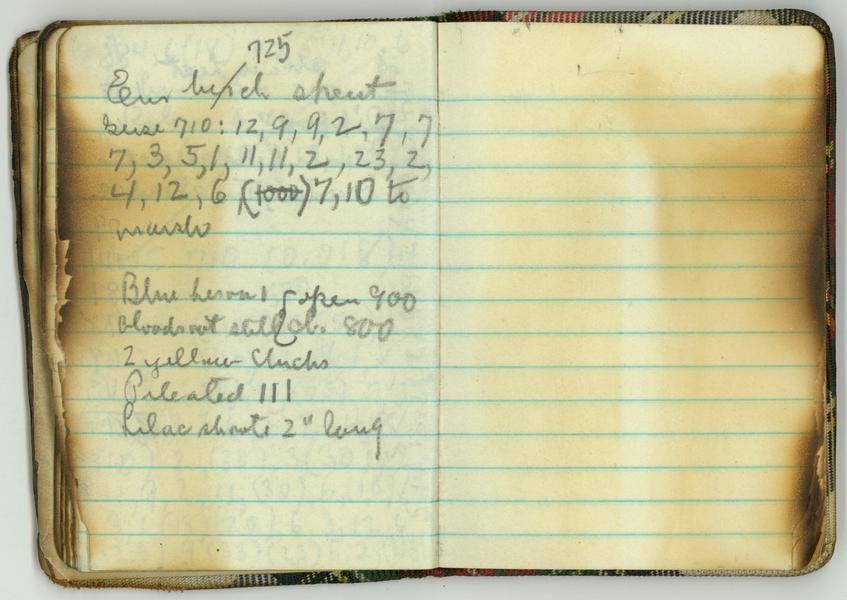 725
Eur birch spent
Geese 710: 12, 9, 9, 2, 7, 7
7, 3, 5, 1, 11, 11, 2, 23, 2,
4, 12, 6 (1000) 7, 10 to
marsh
Blue heron 1 open 900
Bloodroot still cl. 800
2 yellow-
Pileated 111
Lilac shoots 2" long